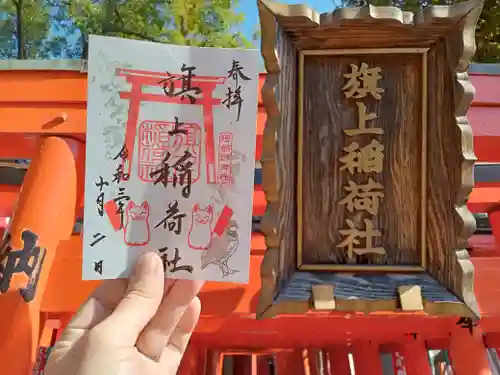 奉拝
旗上稲荷社
令和三年
十月二日
旗上稲荷社
納